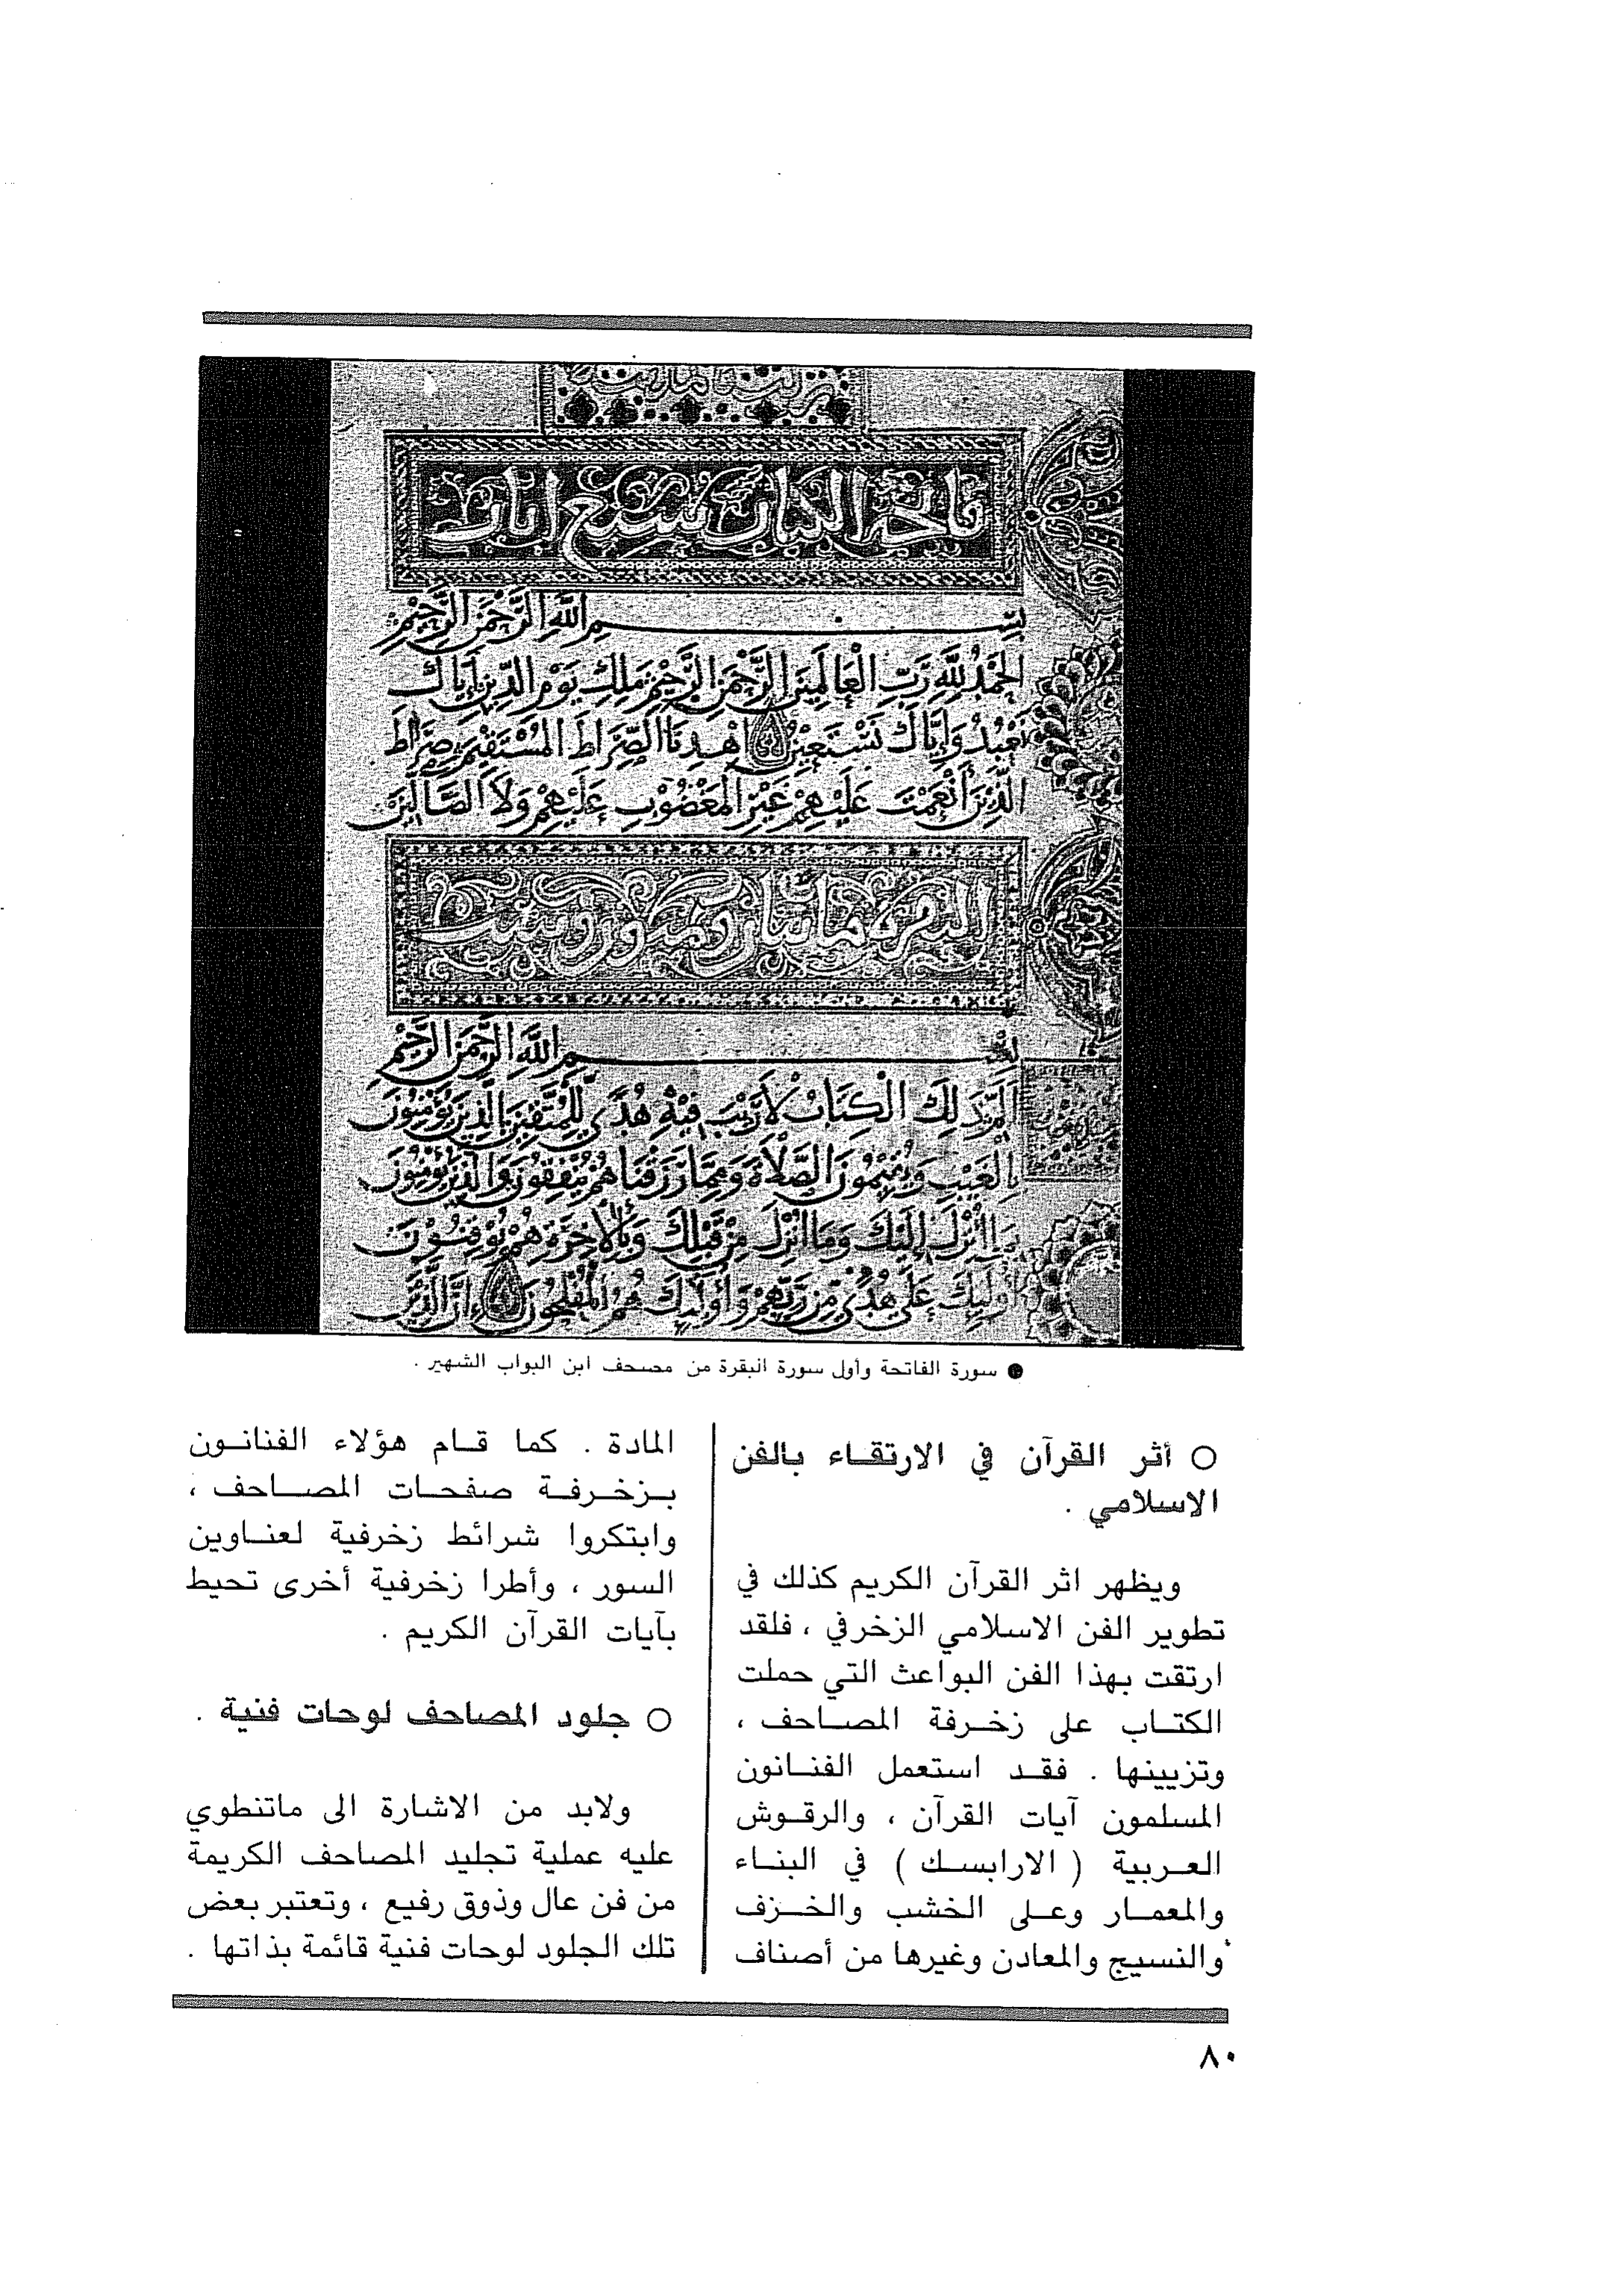 فاتحة الكتاب سبع ايات
بِسْمِ اللَّهِ الرَّحْمَنِ الرَّحِيمِ
الْحَمْدُ لِلَّهِ رَبِّ الْعَالَمِينَ الرَّحْمَنِ الرَّحِيمِ مَلِكِ يَوْمِ الدِّينِ إِيَّاكَ
نَعْبُدُ وَإِيَّاكَ نَسْتَعِينُ اهْدِنَا الصِّرَاطَ الْمُسْتَقِيمَ صِرَاطَ
الَّذِينَ أَنْعَمْتَ عَلَيْهِمْ غَيْرِ الْمَغْضُوبِ عَلَيْهِمْ وَلَا الضَّالِّينَ
البقرة مائتان وثمنون وست
بِسْمِ اللَّهِ الرَّحْمَنِ الرَّحِيمِ
الم ذَلِكَ الْكِتَابُ لَا رَيْبَ فِيهِ هُدًى لِلْمُتَّقِينَ الَّذِينَ يُؤْمِنُونَ
بِالْغَيْبِ وَيُقِيمُونَ الصَّلَاةَ وَمِمَّا رَزَقْنَاهُمْ يُنْفِقُونَ وَالَّذِينَ يُؤْمِنُونَ
بِمَا أُنْزِلَ إِلَيْكَ وَمَا أُنْزِلَ مِنْ قَبْلِكَ وَبِالْآخِرَةِ هُمْ يُوقِنُونَ
أُولَئِكَ عَلَى هُدًى مِنْ رَبِّهِمْ وَأُولَئِكَ هُمُ الْمُفْلِحُونَ إِنَّ الَّذِينَ
● سورة الفاتحة وأول سورة البقرة من مصحف ابن البواب الشهير .
○ أثر القرآن في الارتقاء بالفن
الاسلامي .
ويظهر اثر القرآن الكريم كذلك في
تطوير الفن الاسلامي الزخرفي ، فلقد
ارتقت بهذا الفن البواعث التي حملت
الكتاب على زخرفة المصاحف ،
وتزيينها . فقد استعمل الفنانون
المسلمون آيات القرآن ، والرقوش
العربية ( الارابسك ) في البناء
والمعمار وعلى الخشب والخزف
والنسيج والمعادن وغيرها من أصناف
المادة . كما قام هؤلاء الفنانون
بزخرفة صفحات المصاحف ،
وابتكروا شرائط زخرفية لعناوين
السور ، وأطرا زخرفية أخرى تحيط
بآيات القرآن الكريم .
○ جلود المصاحف لوحات فنية .
ولابد من الاشارة الى ماتنطوي
عليه عملية تجليد المصاحف الكريمة
من فن عال وذوق رفيع ، وتعتبر بعض
تلك الجلود لوحات فنية قائمة بذاتها .
٨٠